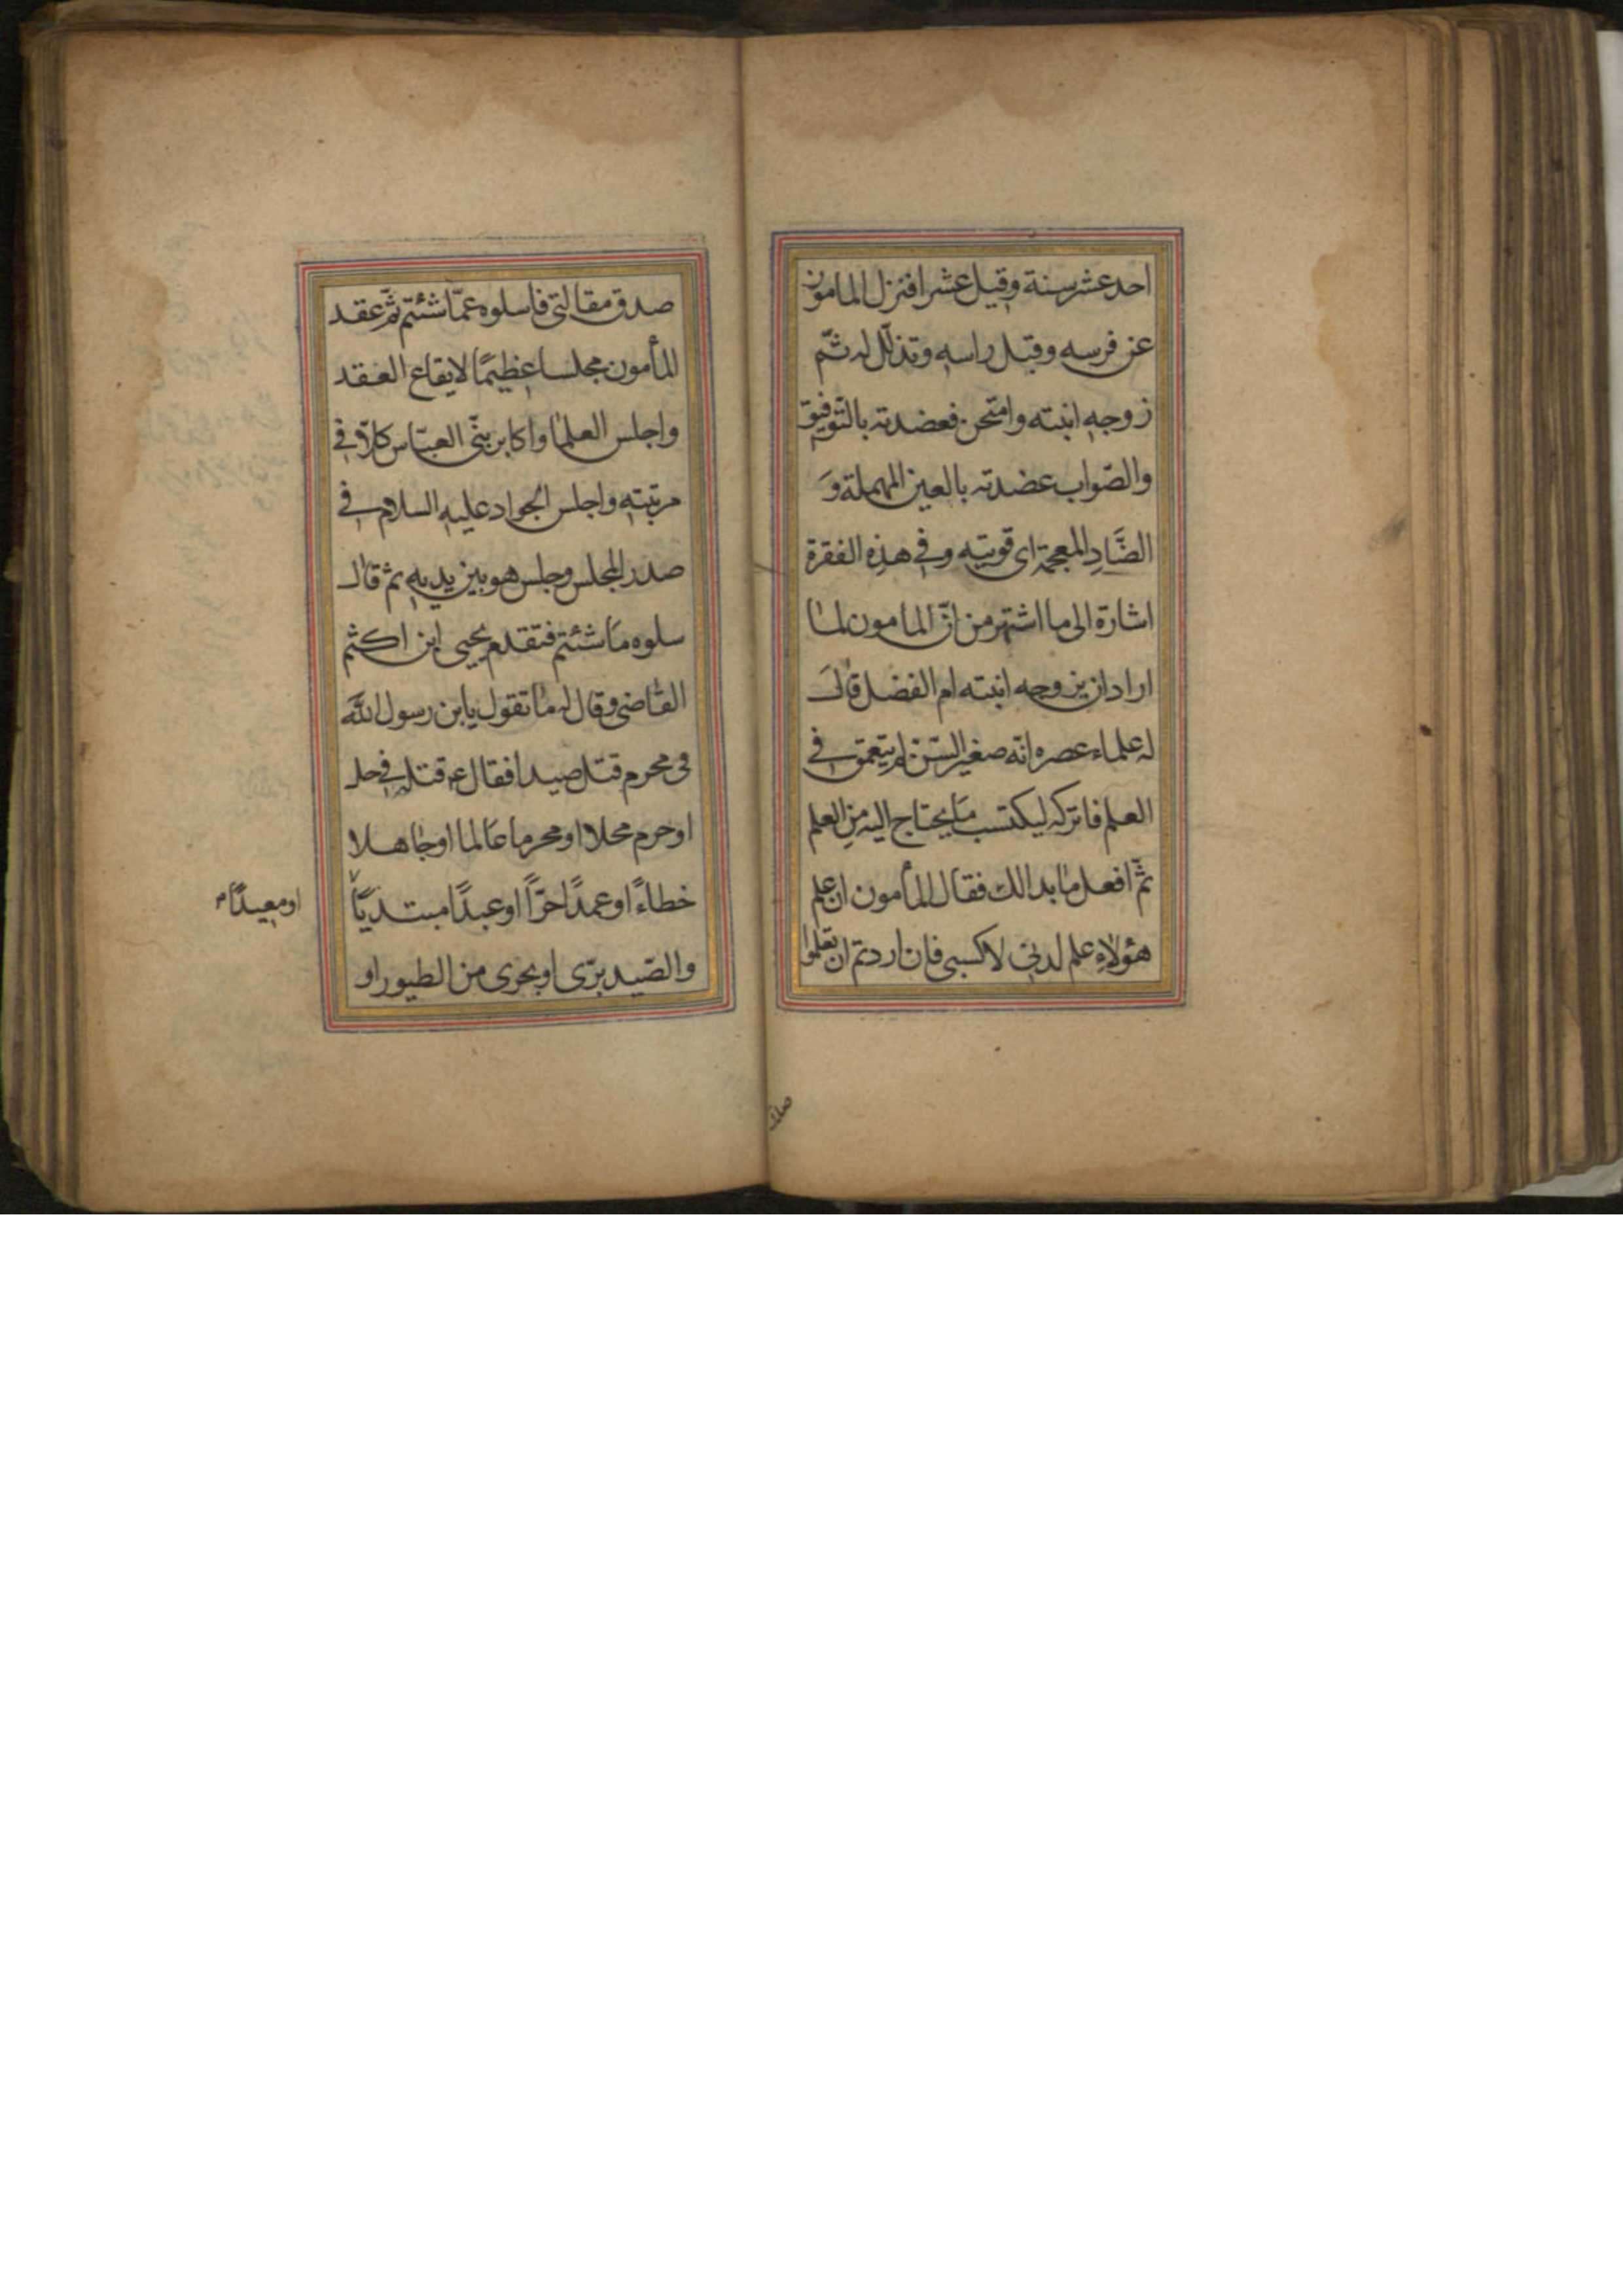 احد عشر سنة وقيل عشرا فنزل المامون
عن فرسه وقبل راسه وتذلّل له ثمّ
زوجه ابنته وامتحن فعضدته بالتّوفيق
والصّواب عضدته بالعين المهملة وَ
الضَّادِ المعجمة اى قويته وفي هذه الفقرة
اشارة الى ما اشتهر من انّ المامون لما
اراد ان يزوجه ابنته ام الفضل قالَ
له علماء عصره انّه صغير السّن لم يتعمق في
العلم فاتركه ليكتسب مَا يحتاج اليه مِن العلم
ثمّ افعل ما بدا لك فقال المأمون ان علم
هؤلاءِ علم لدنى لا كسبى فان اردتم ان تعلموا
صدق
صدق مقالتى فاسلوه عمّا شئتم ثمّ عقد
المأمون مجلسا عظيمًا لايقاع العقد
واجلس العلما واكابر بنى العبّاس كلاّ في
مرتبته واجلس الجواد عليه السلام في
صدر المجلس وجلس هو بين يديه ثم قال
سلوه مَا شئتم فتقدم يحيى ابن اكثم
القاضى وقال له ما تقول يابن رسول اللَّه
فى محرم قتل صيدا فقال ع قتله في حل
او حرم محلا او محرما عَالما او جاهلا
خطاءً او عمدًا حرّاً او عبدًا مبتديًا
او معيدًا م
والصّيد برّى او بحرى من الطيور او